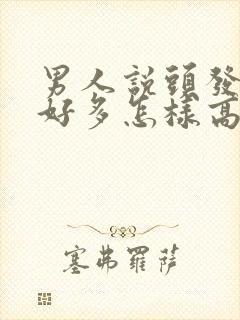 男人說頭發
好多怎樣高
塞弗羅薩